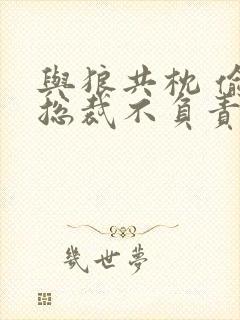 與狼共枕 偷
總裁不負責
幾世夢